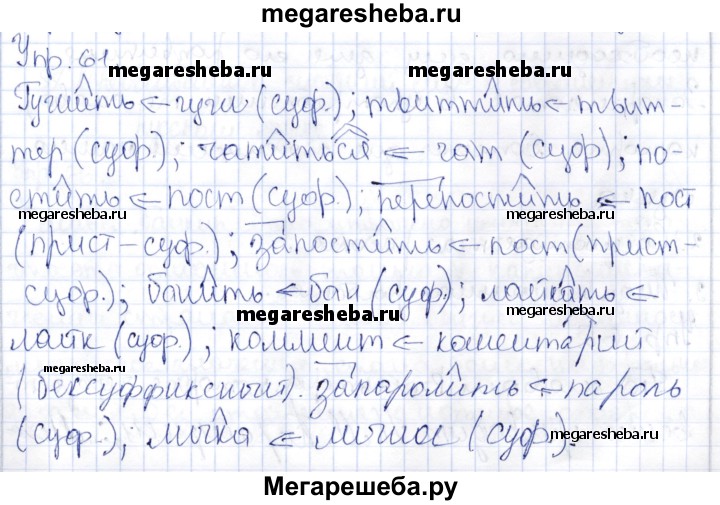 megaresheba.ru
Упр. 61
megaresheba.ru megaresheba.ru
Гуглить ← гугл (суф.); твиттить ← твит-
тер (суф.); чатиться ← чат (суф.); по-
стить ← пост (суф.); перепостить ← пост
megaresheba.ru megaresheba.ru
(прист-суф.); запостить ← пост (прист-
суф.); банить ← бан (суф.); лайкать ←
megaresheba.ru megaresheba.ru
лайк (суф.); коммент ← коментарий
(бессуффиксный). запаролить ← пароль
megaresheba.ru
(суф.); мычка ← личное (суф).
megaresheba.ru
Мегарешеба.ру